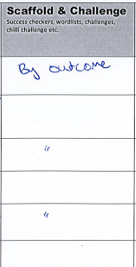 Scaffold & Challenge
Success checkers, wordlists, challenges,
chilli challenge etc.
By outcome
"
"